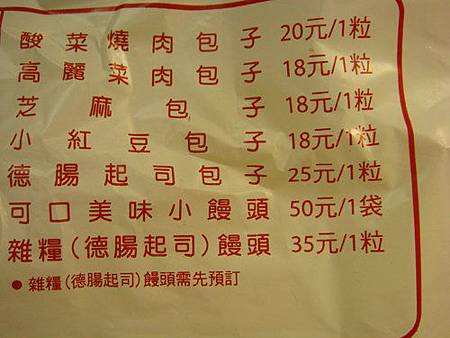 酸菜燒肉包子 20元/1粒
高麗菜肉包子 18元/1粒
芝麻包子 18元/1粒
小紅豆包子 18元/1粒
德腸起司包子 25元/1粒
可口美味小饅頭 50元/1袋
雜糧(德腸起司)饅頭 35元/1粒
● 雜糧(德腸起司)饅頭需先預訂